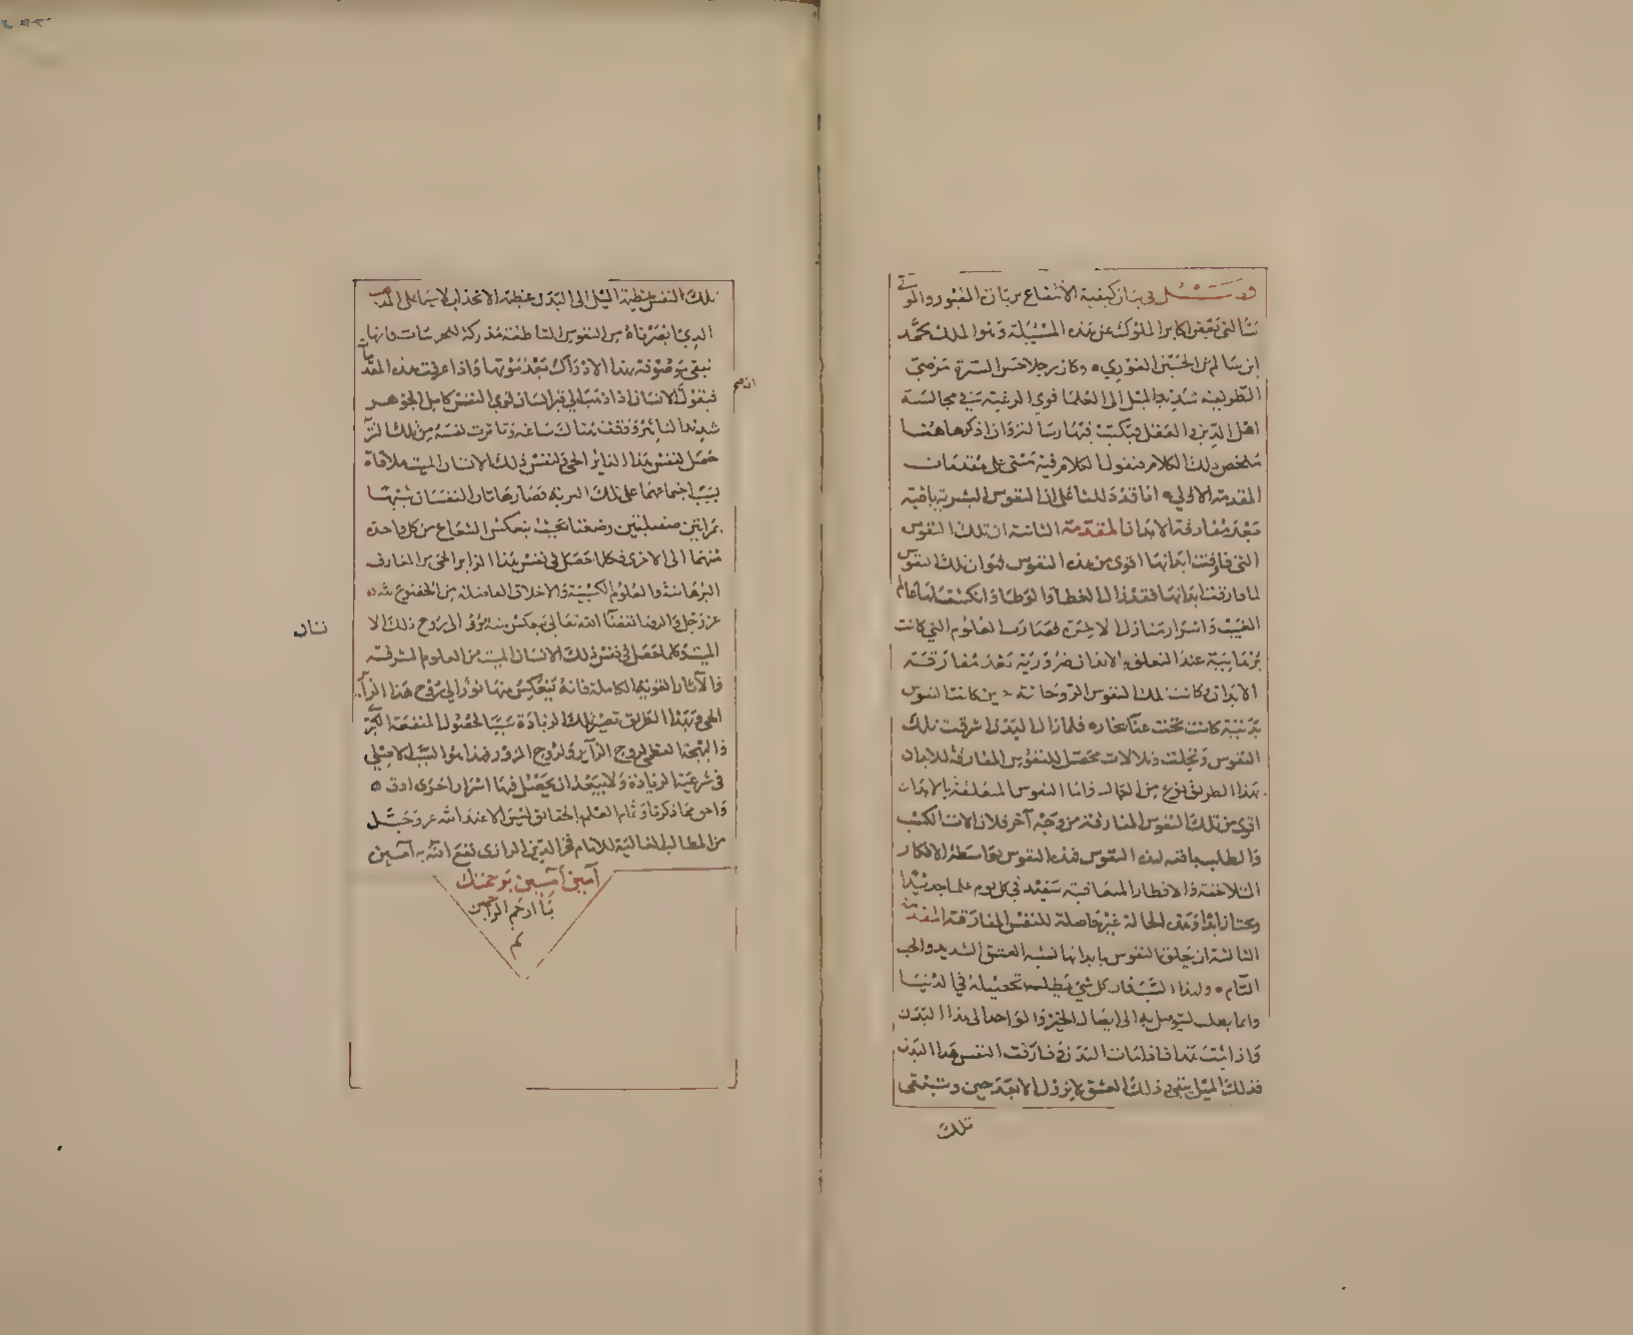 فصل في بيان كيفية الانتفاع بزيارة القبور والموتى
سألني بعض اكابر الملوك عن هذه المسئلة وهو الملك محمد
ابن سالم بن الحسين الغوري وكان رجلا حسن السيرة مرضي
الطريقة شديد الميل الى العلما قوي الرغبة في مجالسة
اهل الدين والعقل فكتبت فيها رسالة وانا اذكرها هنا
ملخص ذلك الكلام فنقول الكلام فيه مبني على مقدمات
المقدمة الاولى انا قد دللنا على ان النفوس البشرية باقية
بعد مفارقة الابدان المقدمة الثانية ان تلك النفوس
التي فارقت ابدانها اقوى من هذه النفوس هو ان تلك النفوس
لما فارقت ابدانها فقد زال الغطا والوطا وانكشف لها عالم
الغيب واسرار منازل الاخرة فصارت العلوم التي كانت
برهانية عند التعلق بالابدان ضرورية بعد مفارقة
الابدان وكانت تلك النفوس الروحانية حين كانت النفوس
بدنية كانت تحت بخار فلما زال البدن اشرقت تلك
النفوس وتجلت وتلالات فحصل للنفوس المفارقة للابدان
بهذا الطريق نوع من الكمال واما النفوس المتعلقة بالابدان
اقوى من تلك النفوس المفارقة من وجه آخر فلان الات الكسب
والطلب باقية لهذه النفوس فهذه النفوس بواسطة الافكار
المتلاحقة والانظار المتعاقبة تستفيد في كل يوم علما جديدا
وهذه الحالة غير حاصلة للنفس المفارقة المقدمة
الثالثة ان تعلق النفوس بابدانها يشبه العشق الشديد والحب
التام ولهذا السبب فان كل شي يطلب تحصيله في الدنيا
وانما يطلب ليتوصل به الى ايصال الخير والراحة الى هذا البدن
واذا ثبت هذا فاذا مات البدن وفارقت النفس هذا البدن
فذلك الميل يبقى وذلك العشق لا يزول الا بعد حين وتبقى
تلك
تلك النفس عظيمة الميل الى البدن عظيمة الانجذاب لا سيما على المذهب
الذي نصرناه من ان النفوس الناطقة مدركة للجزئيات وانها
تبقى موصوفة بهذا الادراك بعد موتها واذا عرفت هذه المقدمات
فنقول ان الانسان اذا ذهب الى قبر انسان قوي النفس كامل الجوهر
شديد التاثير ووقف هناك ساعة وتاثرت نفسه من تلك التربة
حصل لنفس هذا الزائر الحي ولنفس ذلك الانسان الميت ملاقاة
بسبب اجتماعهما على تلك التربة فصارت هاتان النفسان شبيهتان
بمراتين صقيلتين وضعتا بحيث ينعكس الشعاع من كل واحدة
منهما الى الاخرى فكلما حصل في نفس هذا الزاير الحي من المعارف
البرهانية والعلوم الكسبية والاخلاق الفاضلة من الخضوع لله
عز وجل والرضا بقضا الله تعالى ينعكس منه نور الى روح ذلك الا
نسان
الميت وكلما حصل في نفس ذلك الانسان الميت من العلوم المشرقة
والآثار القوية الكاملة فانه ينعكس منها نور الى روح هذا الزائر
الحي وبهذا الطريق تصير تلك الزيارة سببا لحصول المنفعة الكبرى
والبهجة العظمى لروح الزاير ولروح المزور فهذا هو السبب الاصلي
في شرعية الزيارة ولا يبعد ان يحصل فيها اسرار اخرى ادق
واحق مما ذكرنا وتمام العلم بالحقائق ليس الا عند الله عز وجل
من المطالب العالية للامام فخر الدين الرازى نفع الله به آمين
آمين آمين برحمتك
يا ارحم الراحمين
تم